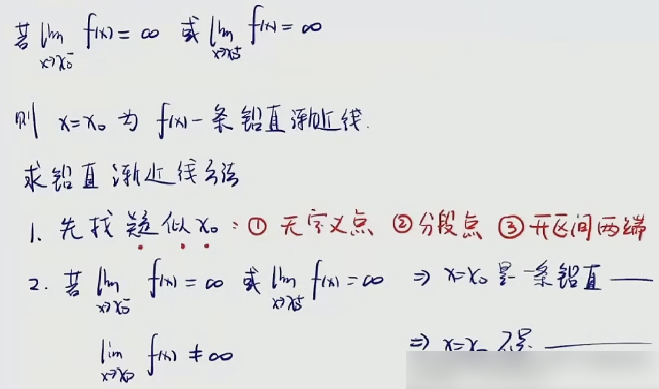 若 lim x→x₀⁻ f(x) = ∞ 或 lim x→x₀⁺ f(x) = ∞
则 x=x₀ 为 f(x) 一条铅直渐近线.
求铅直渐近线方法
1. 先找疑似x₀: ① 无定义点 ② 分段点 ③ 开区间两端
2. 若 lim x→x₀⁻ f(x) = ∞ 或 lim x→x₀⁺ f(x) = ∞ ⇒ x=x₀ 是一条铅直 ——
lim x→x₀ f(x) ≠ ∞ ⇒ x=x₀ 不是 ———